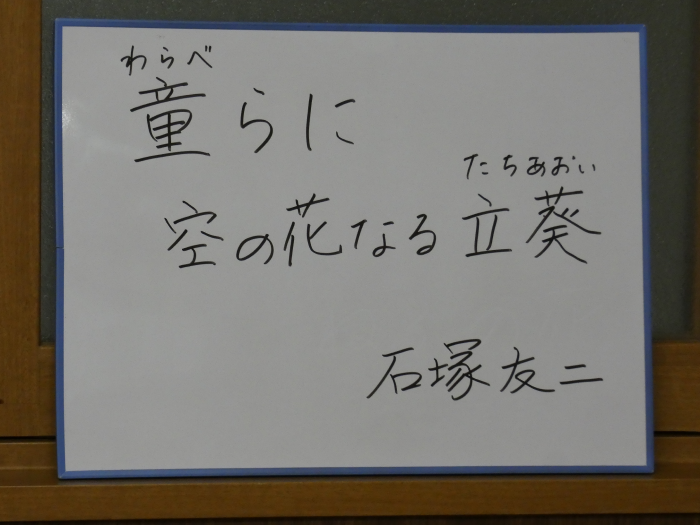 わらべ
童らに
たちあおい
空の花なる立葵
石塚友二